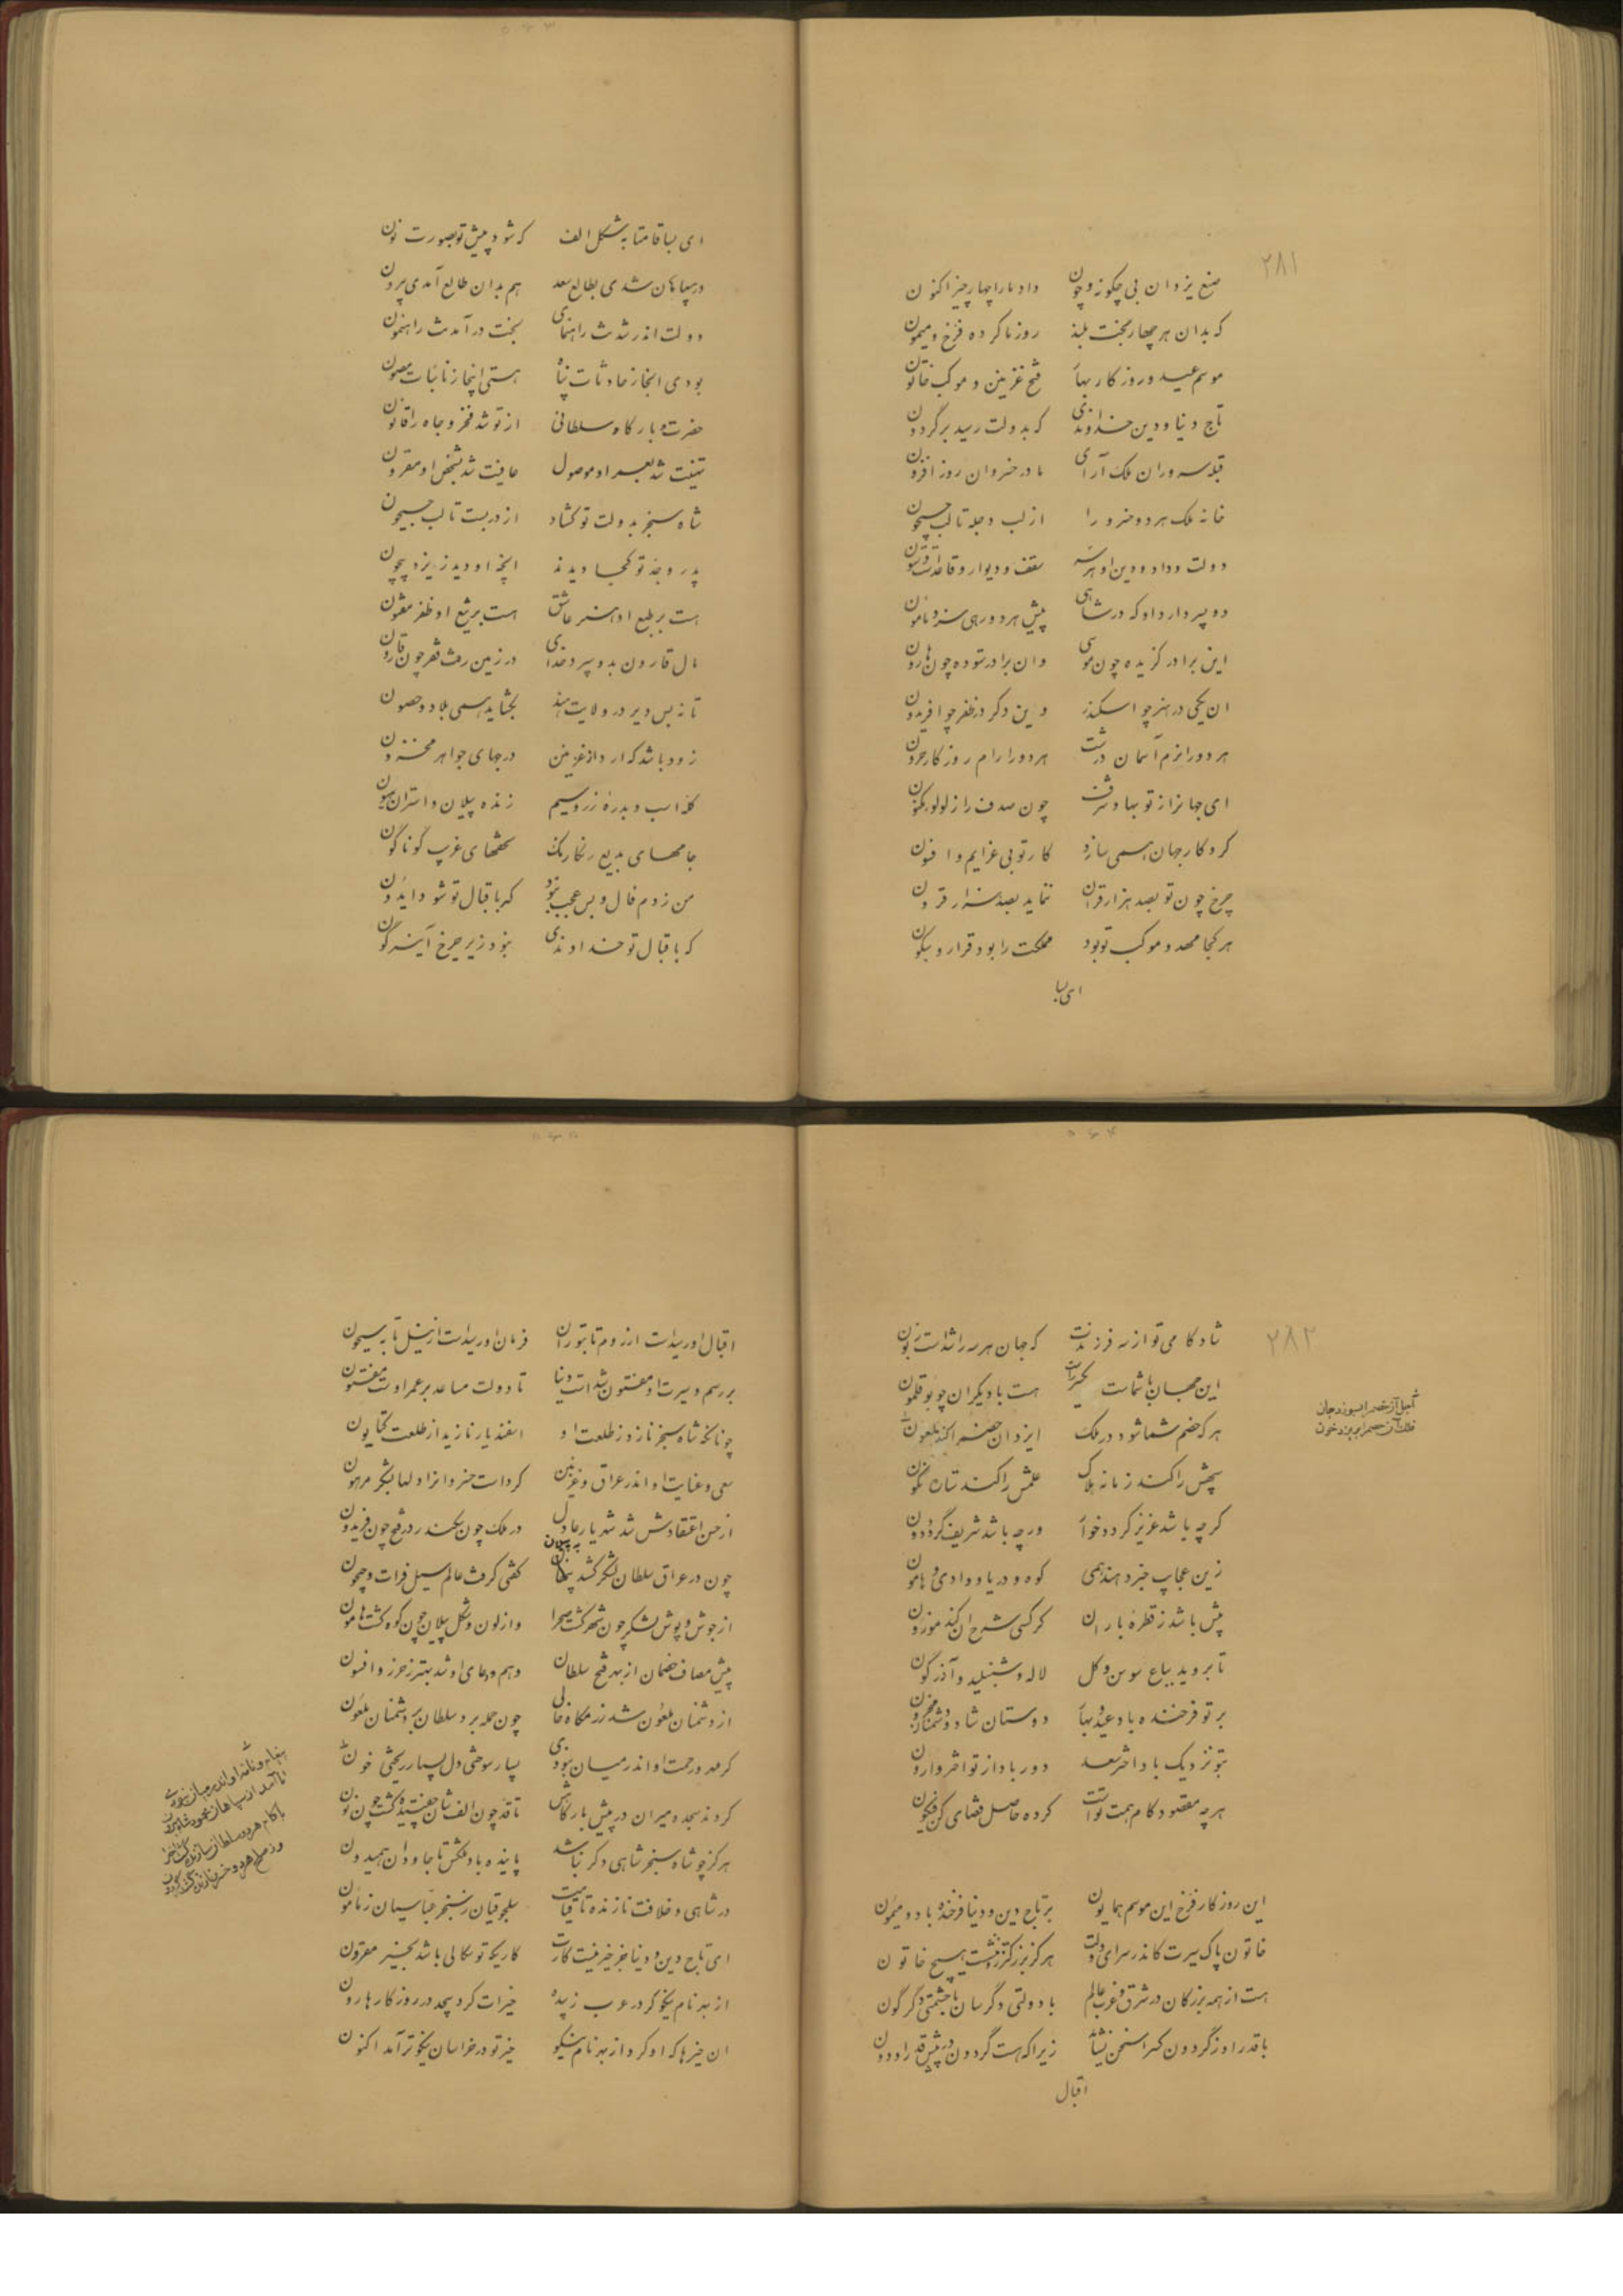 ۲۸۱
صنع یزدان بی چگونه و چون داد ما را چهار چیز اکنون
که بدان هر چهار بخت بلند روز ما کرده فرخ و میمون
موسم عید و روزگار بهار فتح غزنین و موکب خاتون
تاج دنیا و دین خداوندی که بدولت رسید بر گردون
قبله سروران ملک آرای مادر خسروان روز افزون
خانه ملک هر دو خسرو را از لب دجله تا لب جیحون
دولت و داد و دین او هر سه سقف و دیوار و قاعدت و ستون
دو پسر دارد او که در شاهی پیش هر دو رهی سزد مامون
این برادر گزیده چون موسی وان برادر ستوده چون هارون
ان یکی در هنر چو اسکندر وین دگر در ظفر چو افریدون
هر دو را نرم آسمان درشت هر دو را رام روزگار حرون
ای جهانرا ز تو بها و شرف چون صدف را ز لولو مکنون
کردگار جهان همی سازد کار تو بی عزایم و افسون
چرخ چون تو بصد هزار قران ننماید بصد هزار قرون
هر کجا مهد و موکب تو بود مملکت را بود قرار و سکون
ای بسا
ای بسا قامتا به شکل الف که شود پیش تو بصورت نون
در سپاهان شدی بطالع سعد هم بدان طالع آمدی بیرون
دولت اندر شدنت راهنمای بخت در آمدنت راهنمون
بودی انجا ز حادثات پناه هستی اینجا ز نائبات مصون
حضرت و بارگاه سلطانی از تو شد فخر و جاه را قانون
تهنیت شد بعمر او موصول عافیت شد بشخص او مقرون
شاه سنجر بدولت تو گشاد از در بست تا لب جیحون
پدر و جد تو کجا دیدند انچه او دید ز ایزد بیچون
هست بر طبع او هنر عاشق هست بر تیغ او ظفر مفتون
مال قارون بدو سپرد خدای در زمین رفت قهر چون قارون
تا نه بس دیر در ولایت هند بگشاید همی بلاد و حصون
زود باشد که ارد از غزنین درجهای جواهر مخزون
گله اسب و بدرهٔ زر و سیم زنده پیلان و استران هیون
جامهای بدیع رنگارنگ تحفهای غریب گوناگون
من زدم فال و بس عجب نبود که باقبال تو شود ایدون
که باقبال تو خداوندی نبود زیر چرخ آینه گون
۲۸۲
شاد کامی تو از سه فرزندت که جهان هر سه را شدست زبون
این جهان با شماست یکسر راست هست با دیگران چو بوقلمون
هر که خصم شما شود در ملک ایزد ان خصم را کند ملعون
بختش را کند زمانه هلاک علمش را کند ستاره نگون
گرچه باشد عزیز گردد خوار ورچه باشد شریف گردد دون
زین عجایب خبر دهند همی کوه و دریا و وادی و هامون
بیش باشد ز قطرهٔ باران گر کسی شرح ان کند موزون
تا بروید بباغ سوسن و گل لاله و شنبلید و آذرگون
بر تو فرخنده باد عید و بهار دوستان شاد و دشمنان محزون
بتو نزدیک باد اختر سعد دور باد از تو اختر وارون
هرچه مقصود کام همت تواست کرده حاصل قضای کن فیکون
این روزگار فرخ این موسم همایون بر تاج دین و دنیا فرخنده باد و میمون
خاتون پاک سیرت کاندر سرای دولت هرگز بزرگتر زو ننشست هیچ خاتون
هست از همه بزرگان در شرق و غرب عالم با دولتی دگرسان با حشمتی دگرگون
با قدر او ز گردون کس را سخن نباشد زیرا که هست گردون در پیش قدر او دون
اقبال
اقبال او رسیدست از روم تا بتوران فرمان او رسیدست از نیل تا به سیحون
بر رسم و سیرت او مفتون شدست دنیا تا دولت مساعد بر عمر اوست مفتون
چونانکه شاه سنجر نازد ز طلعت او اسفندیار نازید از طلعت کتایون
سعی و عنایت او اندر عراق و غزنین کردست خسروانرا دلها بشکر مرهون
از حسن اعتقادش شد شهریار عادل در ملک چون سکندر در فتح چون فریدون
چون در عراق سلطان لشکر کشید پنهان گفتی گرفت عالم سیل فرات و جیحون
از جوش و پوش لشکر چون شهر گشت صحرا وز لون و شکل پیلان چون کوه گشت هامون
پیش مصاف خصمان از بهر فتح سلطان وهم و دعای او شد بهتر ز حرز و افسون
از دشمنان ملعون شد رزمگاه خالی چون حمله برد سلطان بر دشمنان ملعون
گر مهر و رحمت او اندر میان نبودی بسیار سوختی دل بسیار ریختی خون
کردند سجده میران در پیش بارگاهش تا قد چون الف شان خفتیده گشت چون نون
هرگز چو شاه سنجر شاهی دگر نباشد پاینده باد ملکش تا جاودان همیدون
در شاهی و خلافت نازنده تا قیامت سلجوقیان ز سنجر عباسیان ز مامون
ای تاج دین و دنیا جز خیر نیست کارت کاریکه تو سگالی باشد بخیر مقرون
از بهر نام نیکو کرد در عرب زبیده خیرات گرد بیحد در روزگار هارون
ان خیرها که او کرد از بهر نام نیکو خیر تو در خراسان نیکوتر آمد اکنون